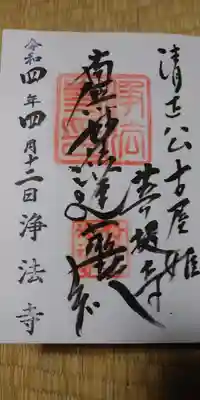 清正公古屋姫
菩提寺
南無妙法蓮華経
令和四年四月十二日 浄法寺